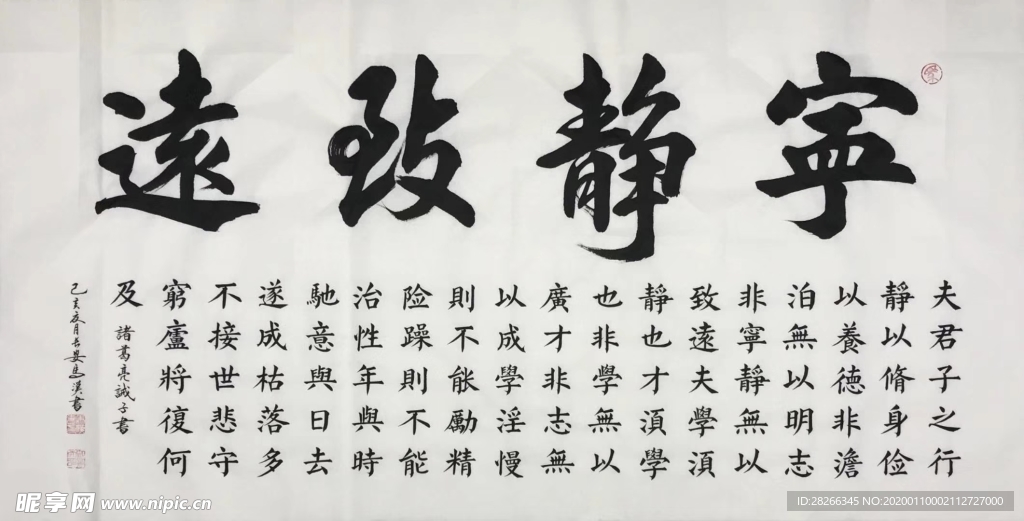 寧靜致遠
夫君子之行
靜以脩身俭
以養德非澹
泊無以明志
非寧靜無以
致遠夫學湏
靜也才湏學
也非學無以
廣才非志無
以成學淫慢
則不能勵精
险躁則不能
治性年與時
馳意與日去
遂成枯落多
不接世悲守
窮廬將復何
及 諸葛亮誡子書
己亥夏月書
昵享网 www.nipic.cn
ID:28266345 NO:20200110002112727000